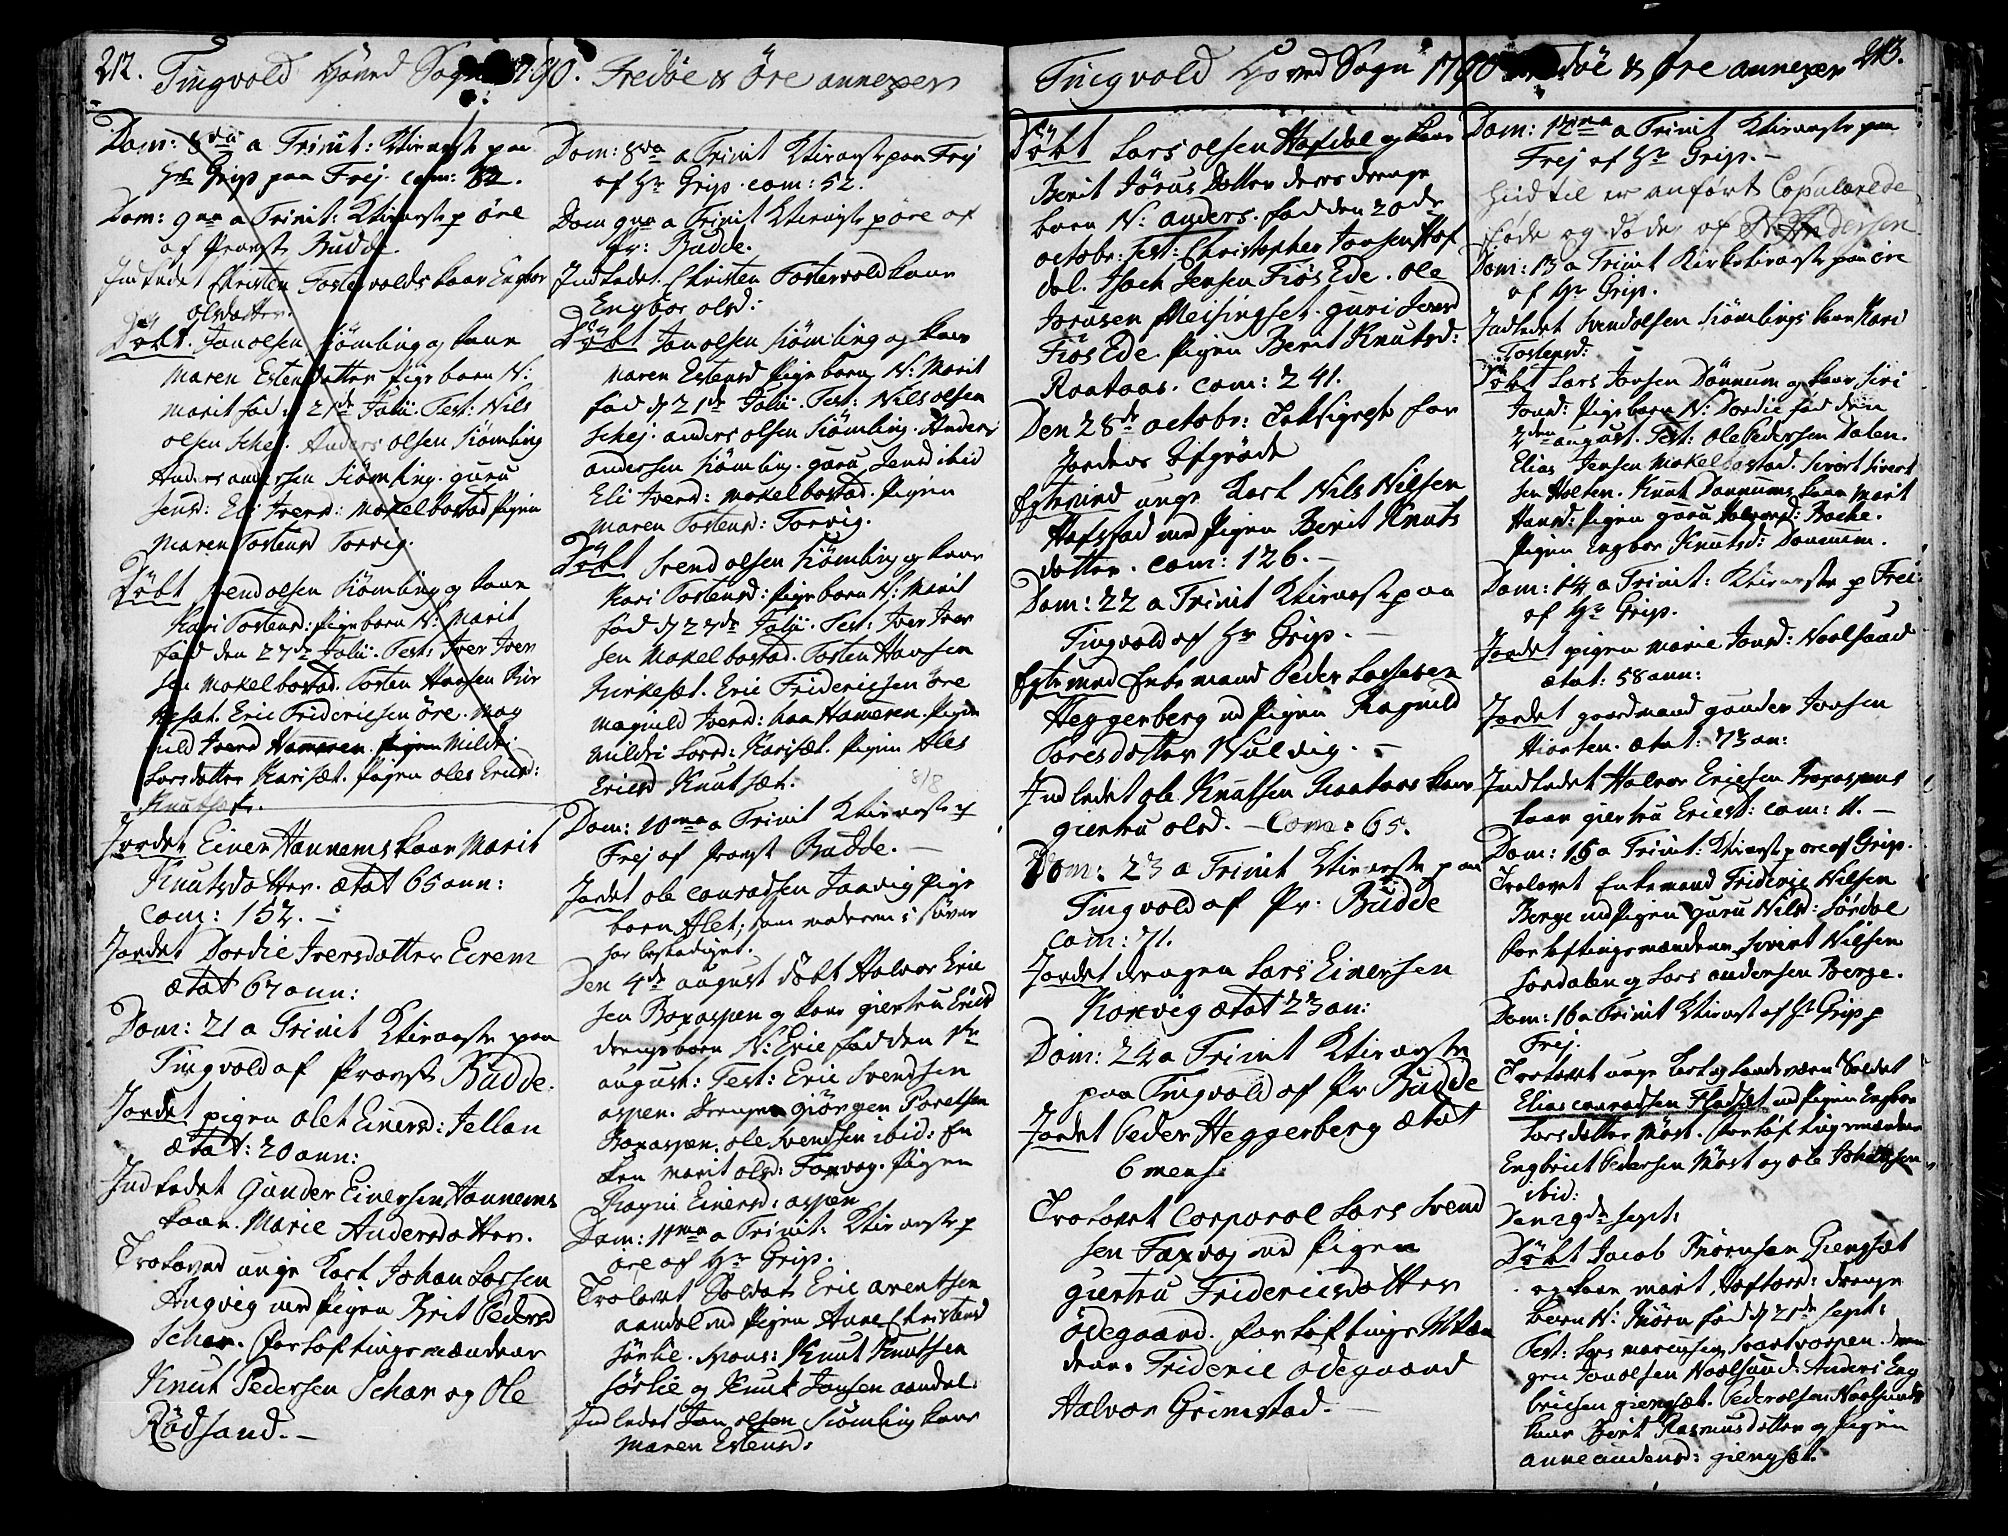 212. Tingvold Hoved Sogn 1790. Fredöe & Öre annexer
Dom: 8va a Trinit: Ktienaste paa
Hr Grip paa Frej. com: 52.
Dom: 9na a Trinit: Ktienaste p öre
af Provst Budde.
Indledet Christen Tostervolds kaar Engbor
olsdatter.
Döbt. Jon olsen Siömling og kaar
Maren Estensdatter Pigebarn N:
Marit fød d 21de Julii. Test: Nils
olsen Schej. Anders olsen Siömling
Anders andersen Siömling. guru
Jensd: Eli Iversd: Mokelbostad Pigen
Maren Tostensd Torvig.
Döbt Svend olsen Siömling og kaar
Kari Tostensd: Pigebarn N: Marit
fød den 27de Julii. Test: Iver Iver
sen Mokelbostad. Tosten Hansen Kir
kesæt. Eric Fridericsen öre. Mag
nild Iversd Hameren. Pigen Mildri
Larsdatter Karisæt. Pigen Oles Ericsd:
Knutsæt.
Jordet Einer Hannems kaar Marit
Knutsdatter. ætat 65 ann:
Com: 152. –
Jordet Dordie Iversdatter Eirem
ætat 67 ann:
Dom: 21 a Trinit Ktienaste paa
Tingvold af Provst Budde.
Jordet pigen Olet Einersd: Jellan
ætat: 20 ann:
Indledet Gunder Einersen Hannems
kaar. Marie Andersdatter.
Trolovet unge Karl Johan Larsen
Angvig med Pigen Brit Pedersd
Schar. forloftingsmændene
Knut Pedersen Schar og Ole
Rödsand. –
Dom: 8va a Trinit Ktienaste paa Frej
af Hr Grip. com: 52.
Dom 9na a Trinit Ktienaste p öre af
Pr: Budde.
Indledet. Christen Tostervold kaar
Engbor olsd:
Döbt Jon olsen Siömling og kaar
Maren Estensd Pigebarn N: Marit
fød d 21de Julii. Test: Nils olsen
Schej. anders olsen Siömling. Anders
andersen Siömling. guru Jensd ibid
Eli Iversd: Mokelbostad. Pigen
Maren Tostensd: Torvig.
Döbt Svend olsen Siömling og kaar
Kari Tostensd: Pigebarn N: Marit
fød d 27de Julii. Test: Iver Iver
sen Mokelbostad. Tosten Hansen
Kirkesæt. Eric Fridericsen öre
Magnild Iversd: Hameren. Pigen
Mildri Larsd: Karisæt. Pigen Ales
Ericsd Knutsæt.
8/8
Dom: 10ma a Trinit Ktienaste p
Frej af Provst Budde. –
Jordet ole Conradsen Jaavig Pige
barn Alet; som moderen i søvne
har beskadiget.
Den 4de august döbt Halvor Eric
sen Boxaspen og kaar giertru Ericsd
drengebarn N: Eric fød den 1ste
august: Test: Eric Svendsen
aspen. Drengen giörgen Poretsen
Boxaspen, ole Svendsen ibid: En
ken Marit olsd: Foxvog. Pigen
Ragni Einersd: aspen
Dom: 11ma a Trinit: Ktienaste p
öre af Hr Grip.
Trolovet Soldat Eric arentsen
aandal med Pigen Anne Christensd
Sørlie. Spons: Knut Knutsen
Sørlie og Knut Jonsen aandal.
Indledet Jon olsen Siömling kaar
Maren Estensd:
Tingvold Hoved Sogn 1790 Fredöe & Øre annexer 213.
Döbt Lars olsen Hafdal og kaar
Berit Jörus Datter deres drenge
barn N: anders. fød den 20de
octobr: Test: Christopher Jonsen Haf
dal. Isach Jensen Fiös Ede. ole
Jorusen Meisingset. guri Iversd
Fiös Ede. Pigen Berit Knutsd:
Raataas. com: 241.
Den 28de octobr: Taksigelse for
Jordens Afgröde
Egtevied unge Karl Nils Nilsen
Hafstad med Pigen Berit Knuts
datter. com: 126. –
Dom: 22 a Trinit Ktienaste paa
Tingvold af Hr Grip. –
Egteviod Enkemand Peder Larsesen
Heggerberg med Pigen Ragnild
Toresdatter Nulvig. –
Indledet ole Knutsen Raataas kaar
giertru olsd. – Com: 65.
Dom: 23 a Trinit Ktienaste paa
Tingvold af Pr. Budde
Com: 71.
Jordet drengen Lars Einersen
Korsvig ætat 23 an:
Dom: 24 a Trinit Ktienaste
paa Tingvold af Pr Budde
Jordet Peder Heggerberg ætat
6 mens:
Trolovet Corporal Lars Svend
sen Foxvog med Pigen
giertru Fridericsdatter
ödegaard. forloftings Mæn
dene Frideric ödegaard
Halvor Grimstad. –
Dom: 12ma a Trinit Ktienaste paa
Frej af Hr Grip. –
Hidtil er anført Copulerede
føde og døde af Andersen
Dom: 13 a Trinit Kirketienaste paa öre
af Hr Grip.
Indledet Svend olsen Siömlings kaar Kari
Tostensd:
Döbt Lars Jonsen Dönnum og kaar Siri
Jonsd: Pigebarn N: Dordie fød den
2den august. Test: Ole Pedersen Dalen.
Elias Jensen Mokelbostad. Sivert Sivert
sen Holten. Knut Dönnums kaar Marit
Hansd: Pigen guru Halvorsd: Bache.
Pigen Engbor Knutsd: Dönnum.
Dom: 14 a Trinit: Ktienaste p Frei:
af Hr Grip.
Jordet pigen Marie Jonsd: Noolsund
ætat: 58 ann:
Jordet gaardmand gunder Jonsen
Hiorten. ætat: 73 an:
Indledet Halvor Ericsen Boxaspens
kaar giertru Ericsd: com: 11. –
Dom: 15 a Trinit: Ktienaste p öre af Grip.
Trolovet Enkemand Frideric Nilsen
Berge med Pigen guru Nilsd: Sördal
forloftingsmændene Sivert Nilsen
Sordalen og Lars andersen Berge.
Dom: 16 a Trinit Ktienast af Hr Grip p
Frej.
Trolovet unge Karl og Landeværn Soldat
Elias Conradsen Fladsæt med Pigen Engbor
Larsdatter Møst. forloftingsmændene
Engbrict Pedersen Møst og ole Johansen
ibid:
Den 29de Sept:
Döbt Jacob Biörnsen Giengsæt
og kaar Marit Haftorsd: drenge
barn N: Biörn fød d 21de Sept:
Test: Lars Marcusen Svartvaspen. dren
gen Jon olsen Noolsund. Anders Eng
bricsen giengsæt. Peder olsen Noolsunds
kaar Berit Rasmusdatter og Pigen
anne audensd: giengsæt.